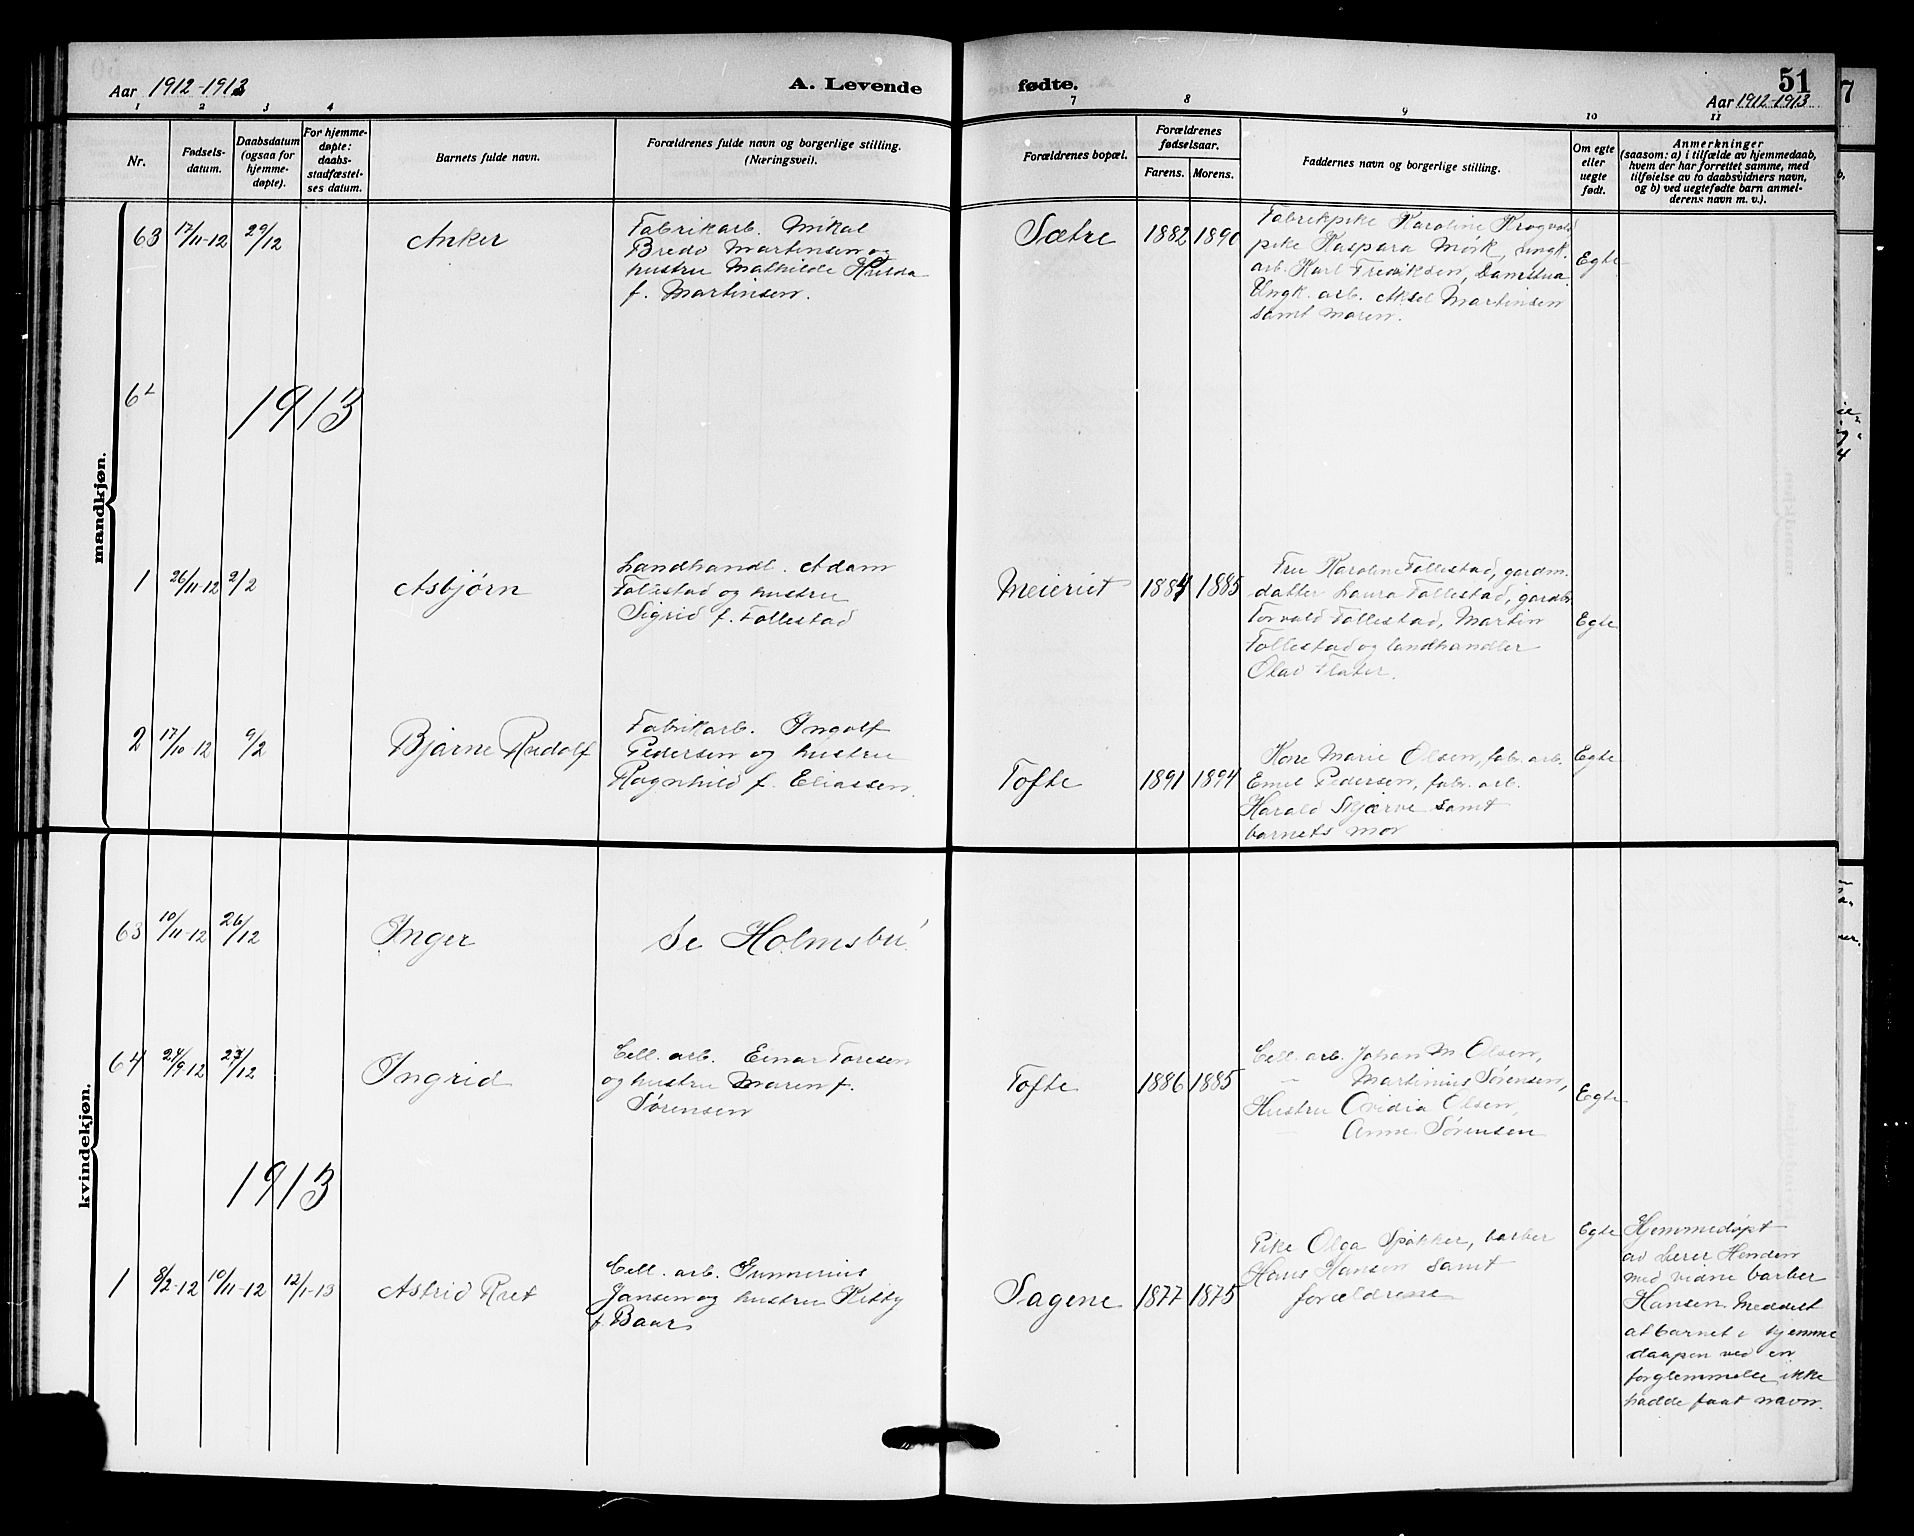 Aar 1912-1913
A. Levende
fødte.
51
Aar 1912-1913
1 2 3 4
7 8 9 10 11
Nr.
Fødsels-
datum.
Daabsdatum
(ogsaa for
hjemme-
døpte).
For hjemme-
døpte:
daabs-
stadfæstel-
ses datum.
Barnets fulde navn.
Forældrenes fulde navn og borgerlige stilling.
(Næringsvei).
Forældrenes bopæl.
Forældrenes
fødselsaar.
Farens. Morens.
Faddernes navn og borgerlige stilling.
Om egte
eller
uegte
født.
Anmerkninger
(saasom: a) i tilfælde av hjemmedaab,
hvem der har forrettet samme, med
tilføielse av to daabsvidners navn,
og b) ved uegtefødte barn anmel-
derens navn m. v.).
mandkjøn.
63 17/11-12 29/12 Anker
Fabrikarb. Mikal
Bredo Martinsen og
hustru Mathilde Hulda
f. Martinsen.
Sætre 1882 1890
Fabrikpike Karoline
pike Kaspara Mørk, ungk.
arb. Karl Fredriksen, Damstua
Ungk. arb. Aksel Martinsen
samt moren.
Egte
64
1913
1 26/11-12 2/2 Asbjørn
Landhandl. Adam
Follestad og hustru
Sigrid f. Follestad
Meieriet 1884 1885
Fru Karoline Follestad, gardm.
datter Laura Follestad, gardbr
Torvald Follestad, Martin
Follestad og landhandler
Olav
Egte
2 17/10-12 9/2 Bjarne Rudolf
Fabrikarb. Ingolf
Pedersen og hustru
Ragnhild f. Eliassen.
Tofte 1891 1894
Kone Marie Olsen, fab. arb.
Emil Pedersen, fabr. arb.
Harald Skjærve samt
barnets mor
Egte
kvindekjøn.
63 10/11-12 26/12 Inger
Se Holmsbu!
64 24/9-12 23/12 Ingrid
Cell. arb. Einar Toresen
og hustru Maren f.
Sørensen
Tofte 1886 1885
Cell. arb. Johan M. Olsen,
— Martinius Sørensen,
Hustru Ovidia Olsen,
— Anne Sørensen
Egte
1913
1 8/2-12 10/11-12 12/1-13 Astrid
Cell. arb. Gunnerius
Jansen og hustru Kitty
f. Baar
Sagene 1877 1875
Pike Olga Spøkker, barber
Hans Hansen samt
forældrene
Egte
Hjemmedøpt
av
med vidne barber
Hansen. Meddelt
at barnet i hjemme
daapen ved en
forglemmelse ikke
hadde faat navn.